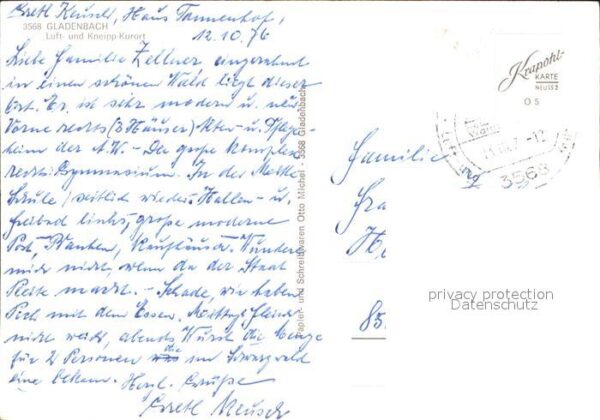 Gretl Meusch, Haus Tannenhof,
3568 GLADENBACH
Luft- und Kneipp-Kurort
12.10.76
Liebe Familie Zellner eingerahmt
in einen schönen Wald liegt dieser
Ort. Er ist sehr modern u. neu
Vorne rechts (3 Häuser) Alten- u. Pflege-
heim der A.W. - Der große Komplex
rechts Gymnasium. In der Mitte
Schule, seitlich wieder Hallen- u.
Freibad links, große moderne
Post, Banken, Kaufhäuser. Wundere
mich nicht, wenn da der Staat
Pleite macht. - Schade, wir haben
Pech mit dem Essen. Mittags Fleisch
nicht weich, abends Wurst die Menge
für 2 Personen die im Schwarzwald
eine bekam. Herzl. Grüße
Gretl Meusch
Papier- und Schreibwaren Otto Michel · 3568 Gladenbach
Krapohl-
KARTE
NEUSS 2
O 5
3568
Familie
Fra
He
85
privacy protection
Datenschutz